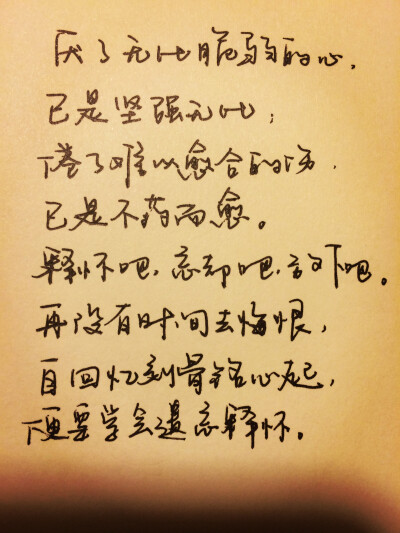 厌了无比脆弱的心，
已是坚强无比；
倦了难以愈合的伤，
已是不药而愈。
释怀吧，忘却吧，放下吧。
再没有时间去悔恨，
自回忆刻骨铭心起，
便要学会遗忘释怀。